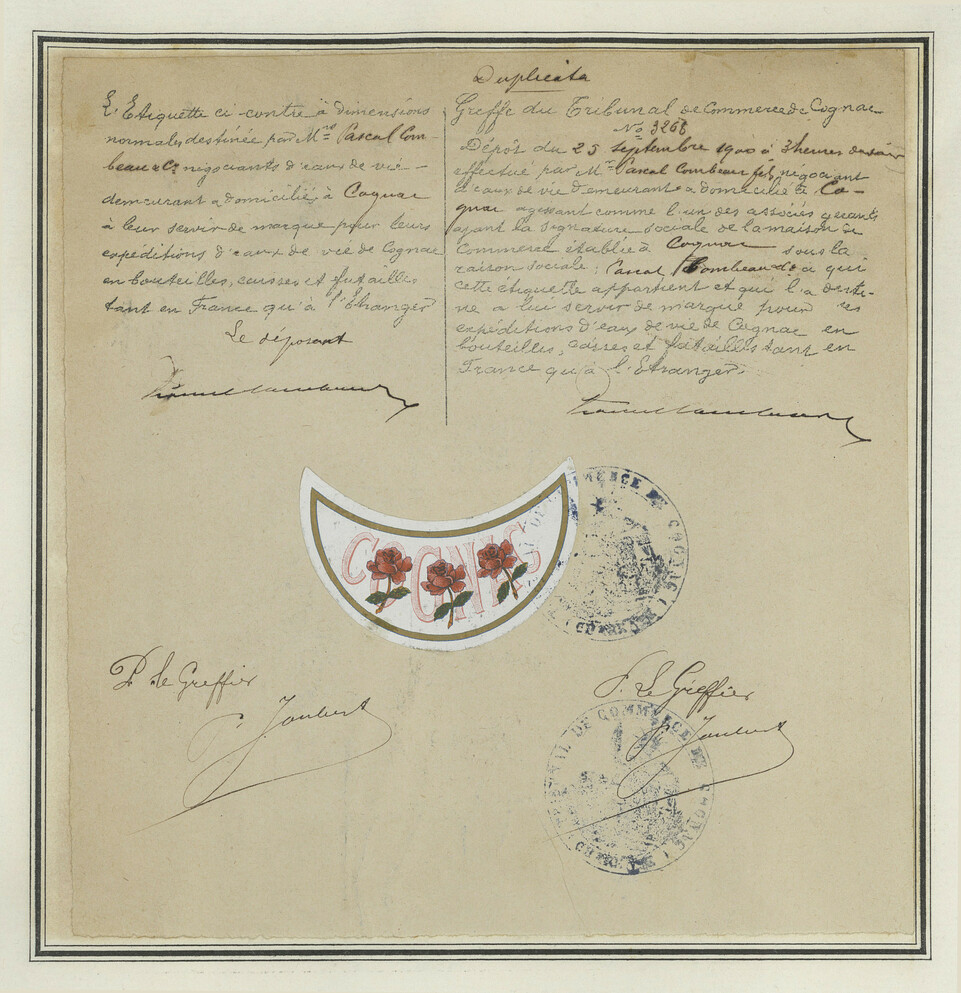 Duplicata
L'Etiquette ci-contre à dimensions
normales destinée par Mrs Pascal Com-
beau & Ce negociants d'eaux de vie
demeurant & domiciliés à Cognac
à leur servir de marque pour leurs
expéditions d'eaux de vie de Cognac
en bouteilles, caisses et futailles
tant en France qu'à l'Etranger
Le déposant
Greffe du Tribunal de Commerce de Cognac
No 3268
Dépôt du 25 Septembre 1900 à 3 heures du soir
effectué par Mr Pascal Combeau fils, negociant
d'eaux de vie demeurant & domicilié à Co-
gnac agissant comme l'un des associés gérants
ayant la signature sociale de la maison de
Commerce établie à Cognac sous la
raison sociale: Pascal Combeau & Ce à qui
cette étiquette appartient et qui l'a desti-
née à lui servir de marque pour ses
expéditions d'eaux de vie de Cognac en
bouteilles, caisses et futailles tant en
France qu'à l'Etranger.
COGNAC
MERCE DE COGNAC
P. Le Greffier
Joubert
P. Le Greffier
Joubert
TRIBUNAL DE COMMERCE DE COGNAC